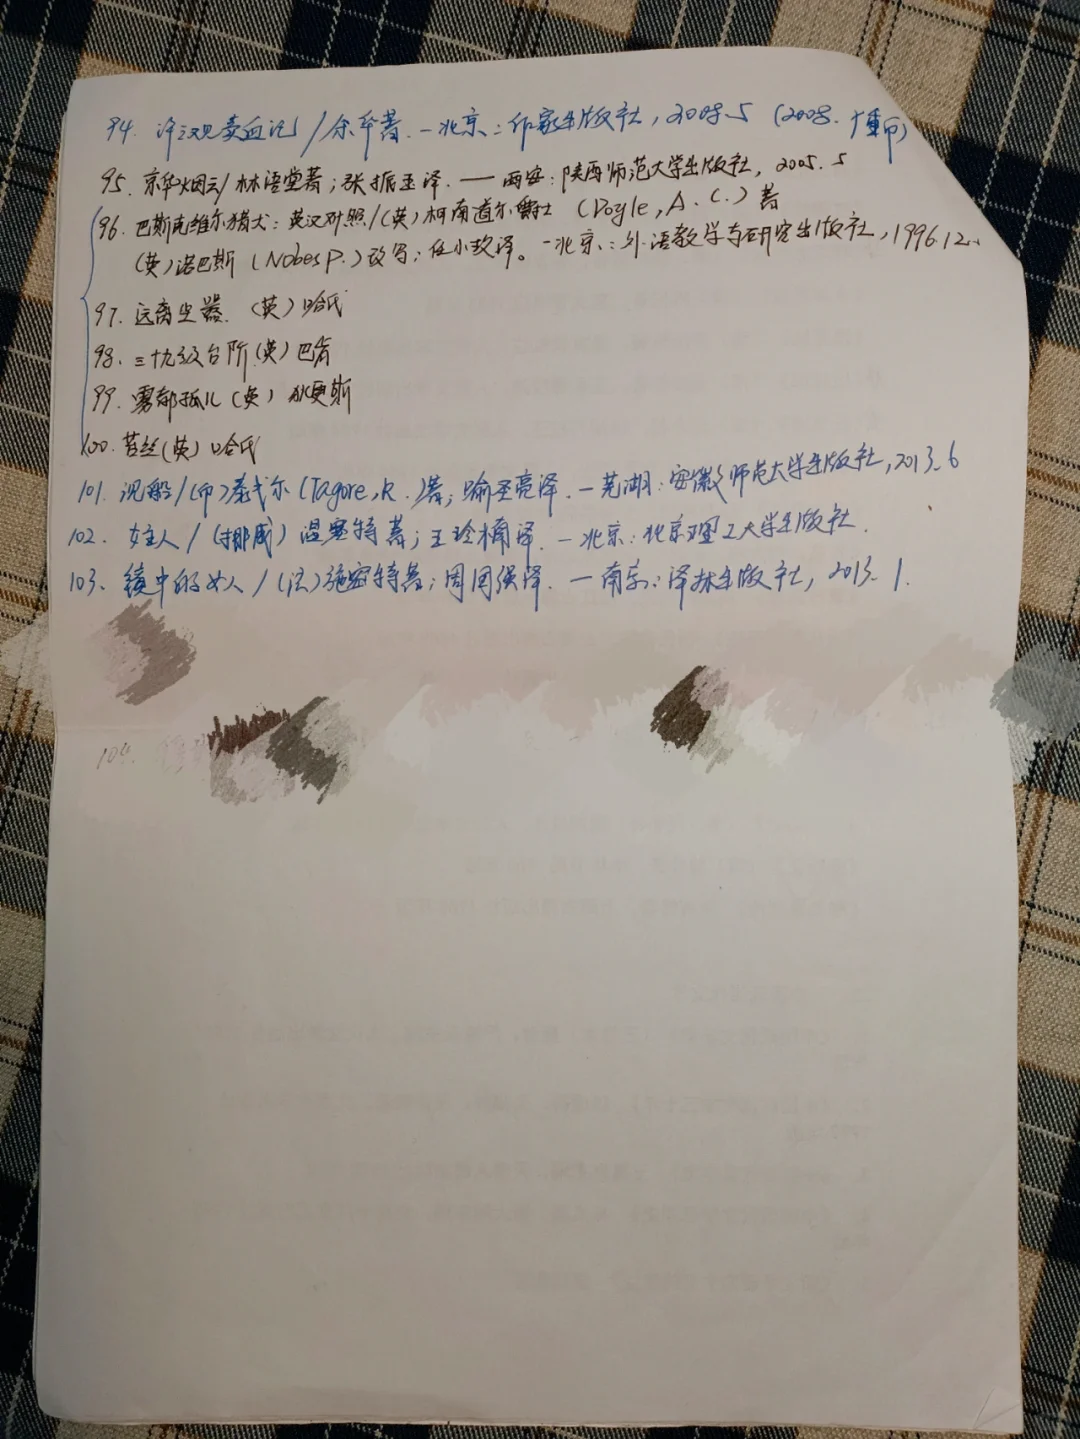 94. 许三观卖血记 /余华著.—北京:作家出版社,2008.5 (2008. 重印)
95. 京华烟云/林语堂著;张振玉译.——西安:陕西师范大学出版社,2005.5
96. 巴斯克维尔猎犬:英汉对照/(英)柯南道尔爵士 (Doyle, A. C.) 著
(英)诺巴斯 (Nobes P.) 改写;任小玫译。—北京:外语教学与研究出版社,1996.12.
97. 远离尘嚣. (英)哈代
98. 三十九级台阶(英)巴肯
99. 雾都孤儿(英) 狄更斯
100. 苔丝(英)哈代
101. 沉船/(印)泰戈尔(Tagore, R.)著;喻圣亮译.—芜湖:安徽师范大学出版社,2013.6
102. 女主人/(挪威)温塞特著;王玲楠译.—北京:北京理工大学出版社.
103. 镜中的女人/(法)施密特著;周国强译.—南京:译林出版社,2013.1.
104.